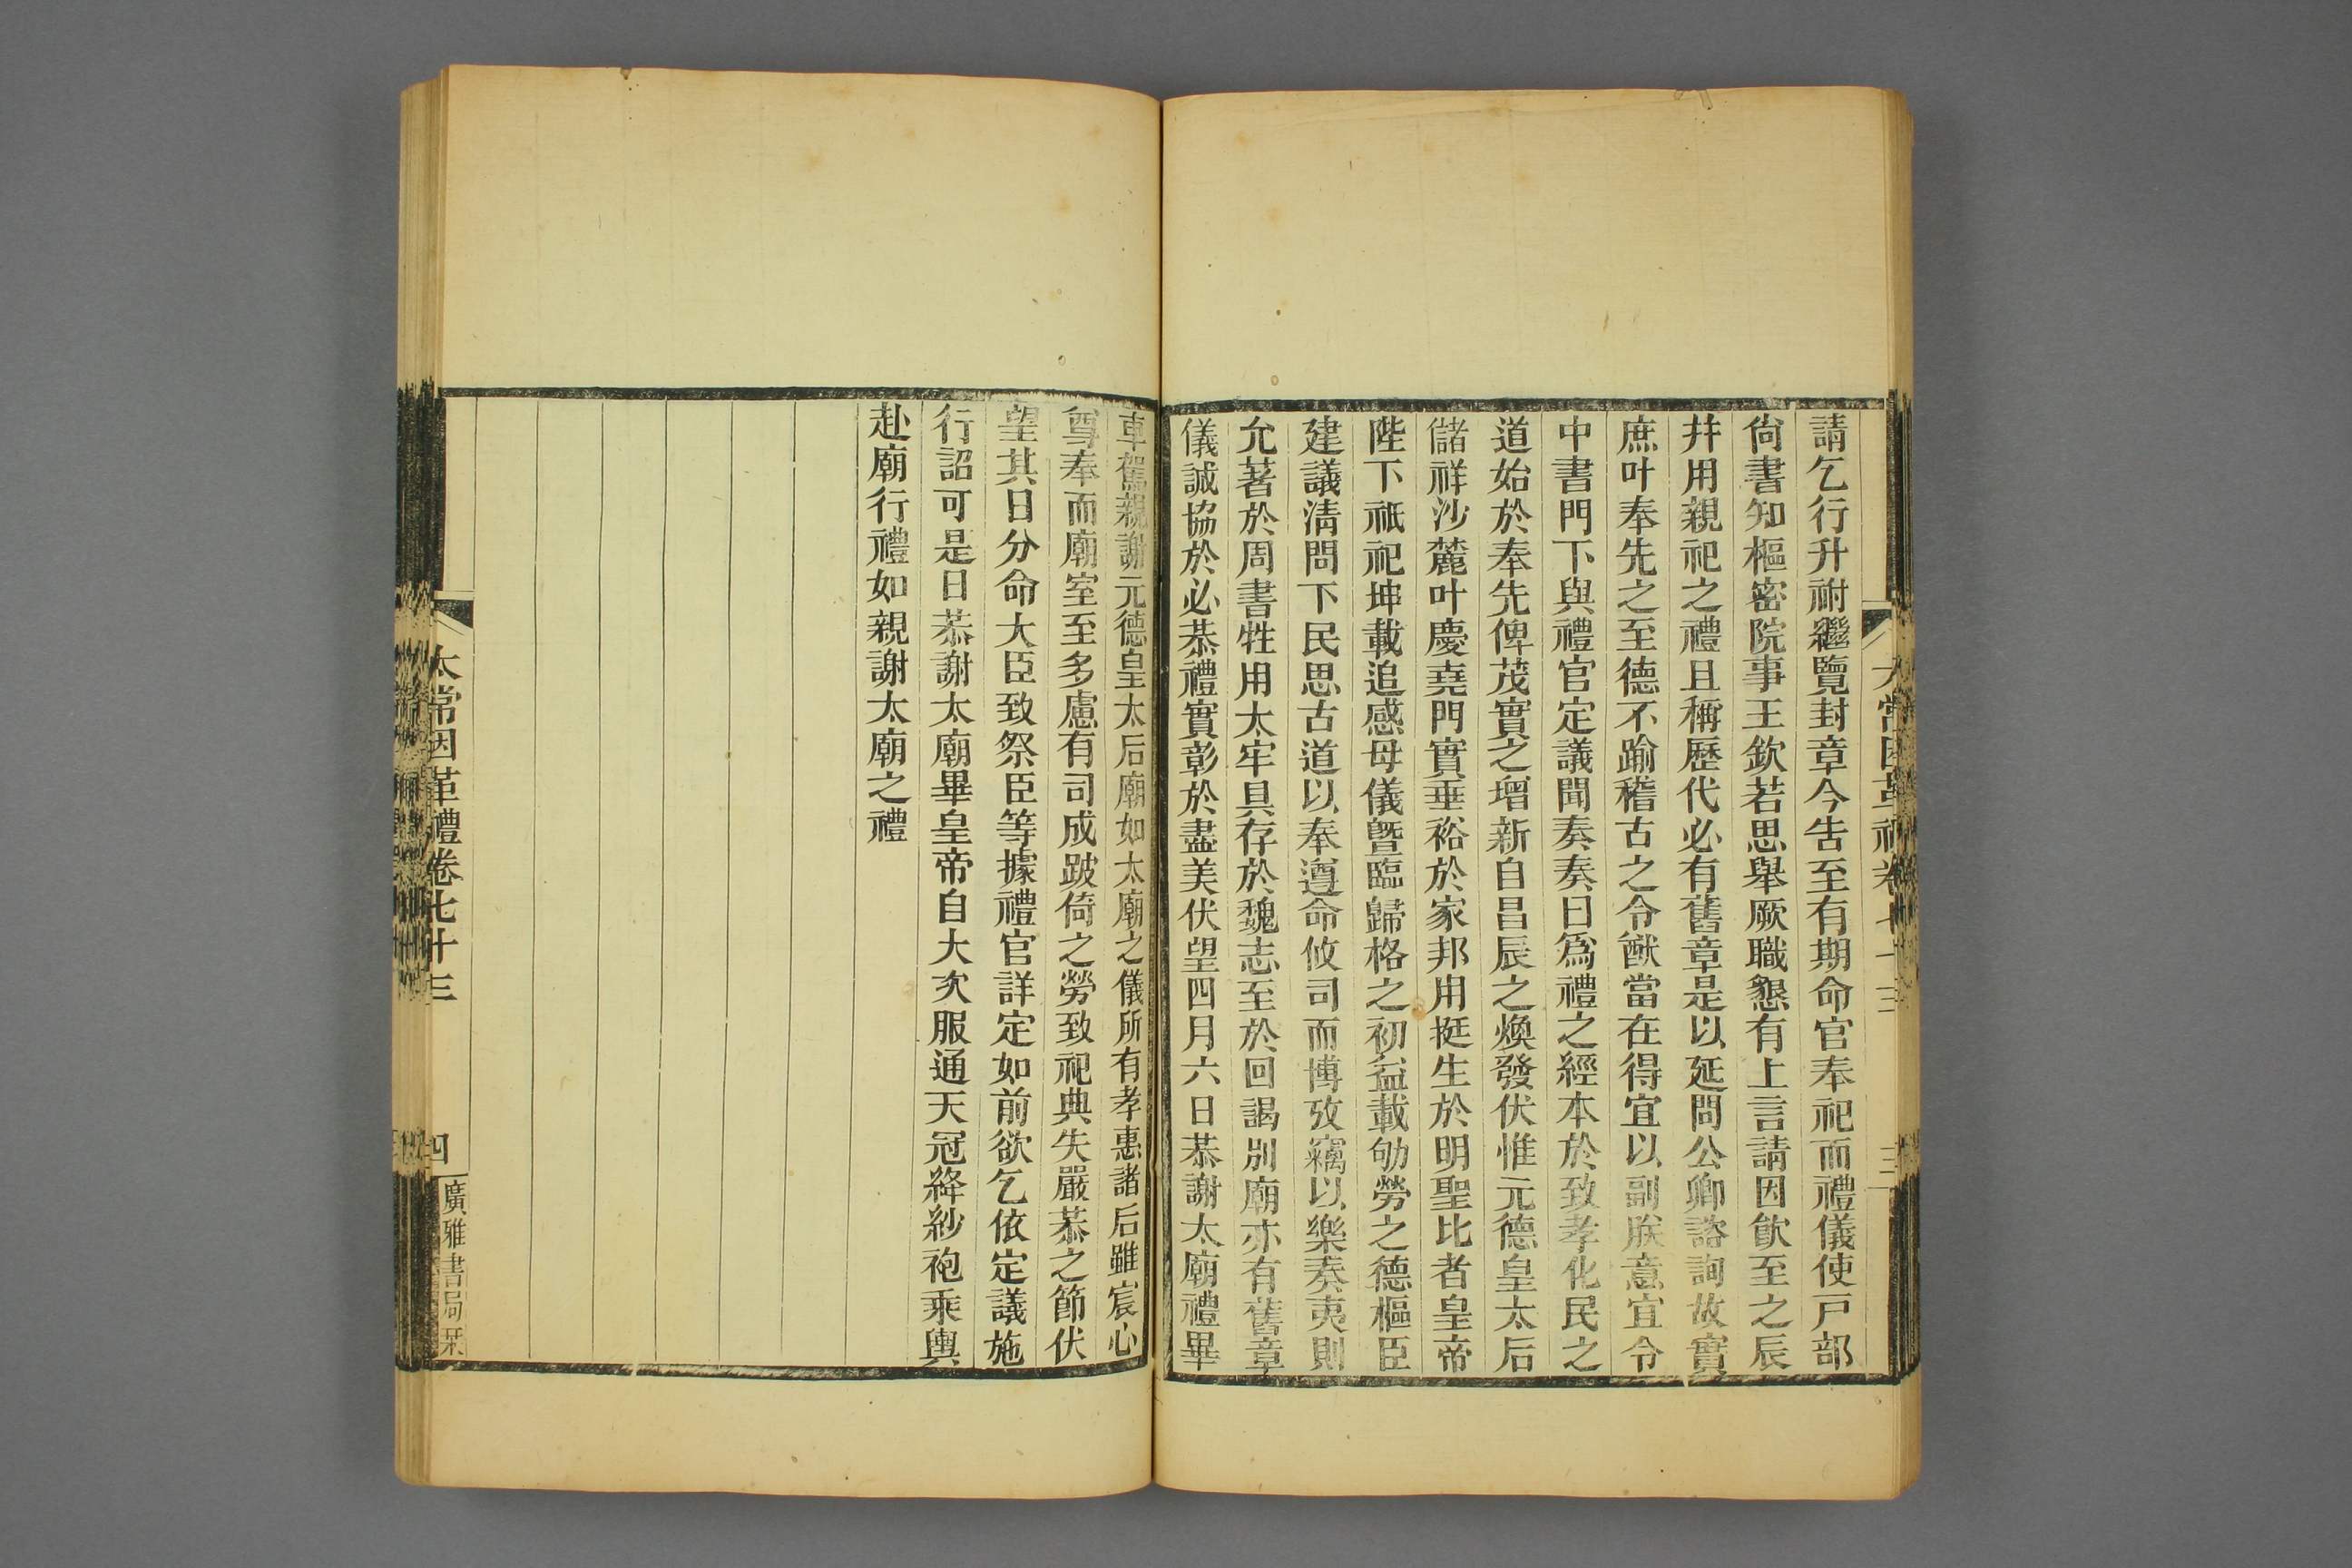 請乞行升祔繼覽封章今吿至有期命官奉祀而禮儀使戸部
尙書知樞密院事王欽若思舉厥職懇有上言請因飮至之辰
幷用親祀之禮且稱歷代必有舊章是以延問公卿諮詢故實
庶叶奉先之至德不踰稽古之令猷當在得宜以副朕意宜令
中書門下與禮官定議聞奏奏曰爲禮之經本於致孝化民之
道始於奉先俾茂實之增新自昌辰之煥發伏惟元德皇太后
儲祥沙麓叶慶堯門實垂裕於家邦用挺生於明聖比者皇帝
陛下祇祀坤載追感母儀曁臨歸格之初益載劬勞之德樞臣
建議淸問下民思古道以奉遵命攸司而博攷竊以樂奏夷則
允著於周書牲用太牢具存於魏志至於回謁別廟亦有舊章
儀誠協於必恭禮實彰於盡美伏望四月六日恭謝太廟禮畢
車駕親謝元德皇太后廟如太廟之儀所有孝惠諸后雖宸心
尊奉而廟室至多慮有司成跛倚之勞致祀典失嚴恭之節伏
望其日分命大臣致祭臣等據禮官詳定如前欲乞依定議施
行詔可是日恭謝太廟畢皇帝自大次服通天冠絳紗袍乘輿
赴廟行禮如親謝太廟之禮
太常因革禮卷七十三
四
廣雅書局栞